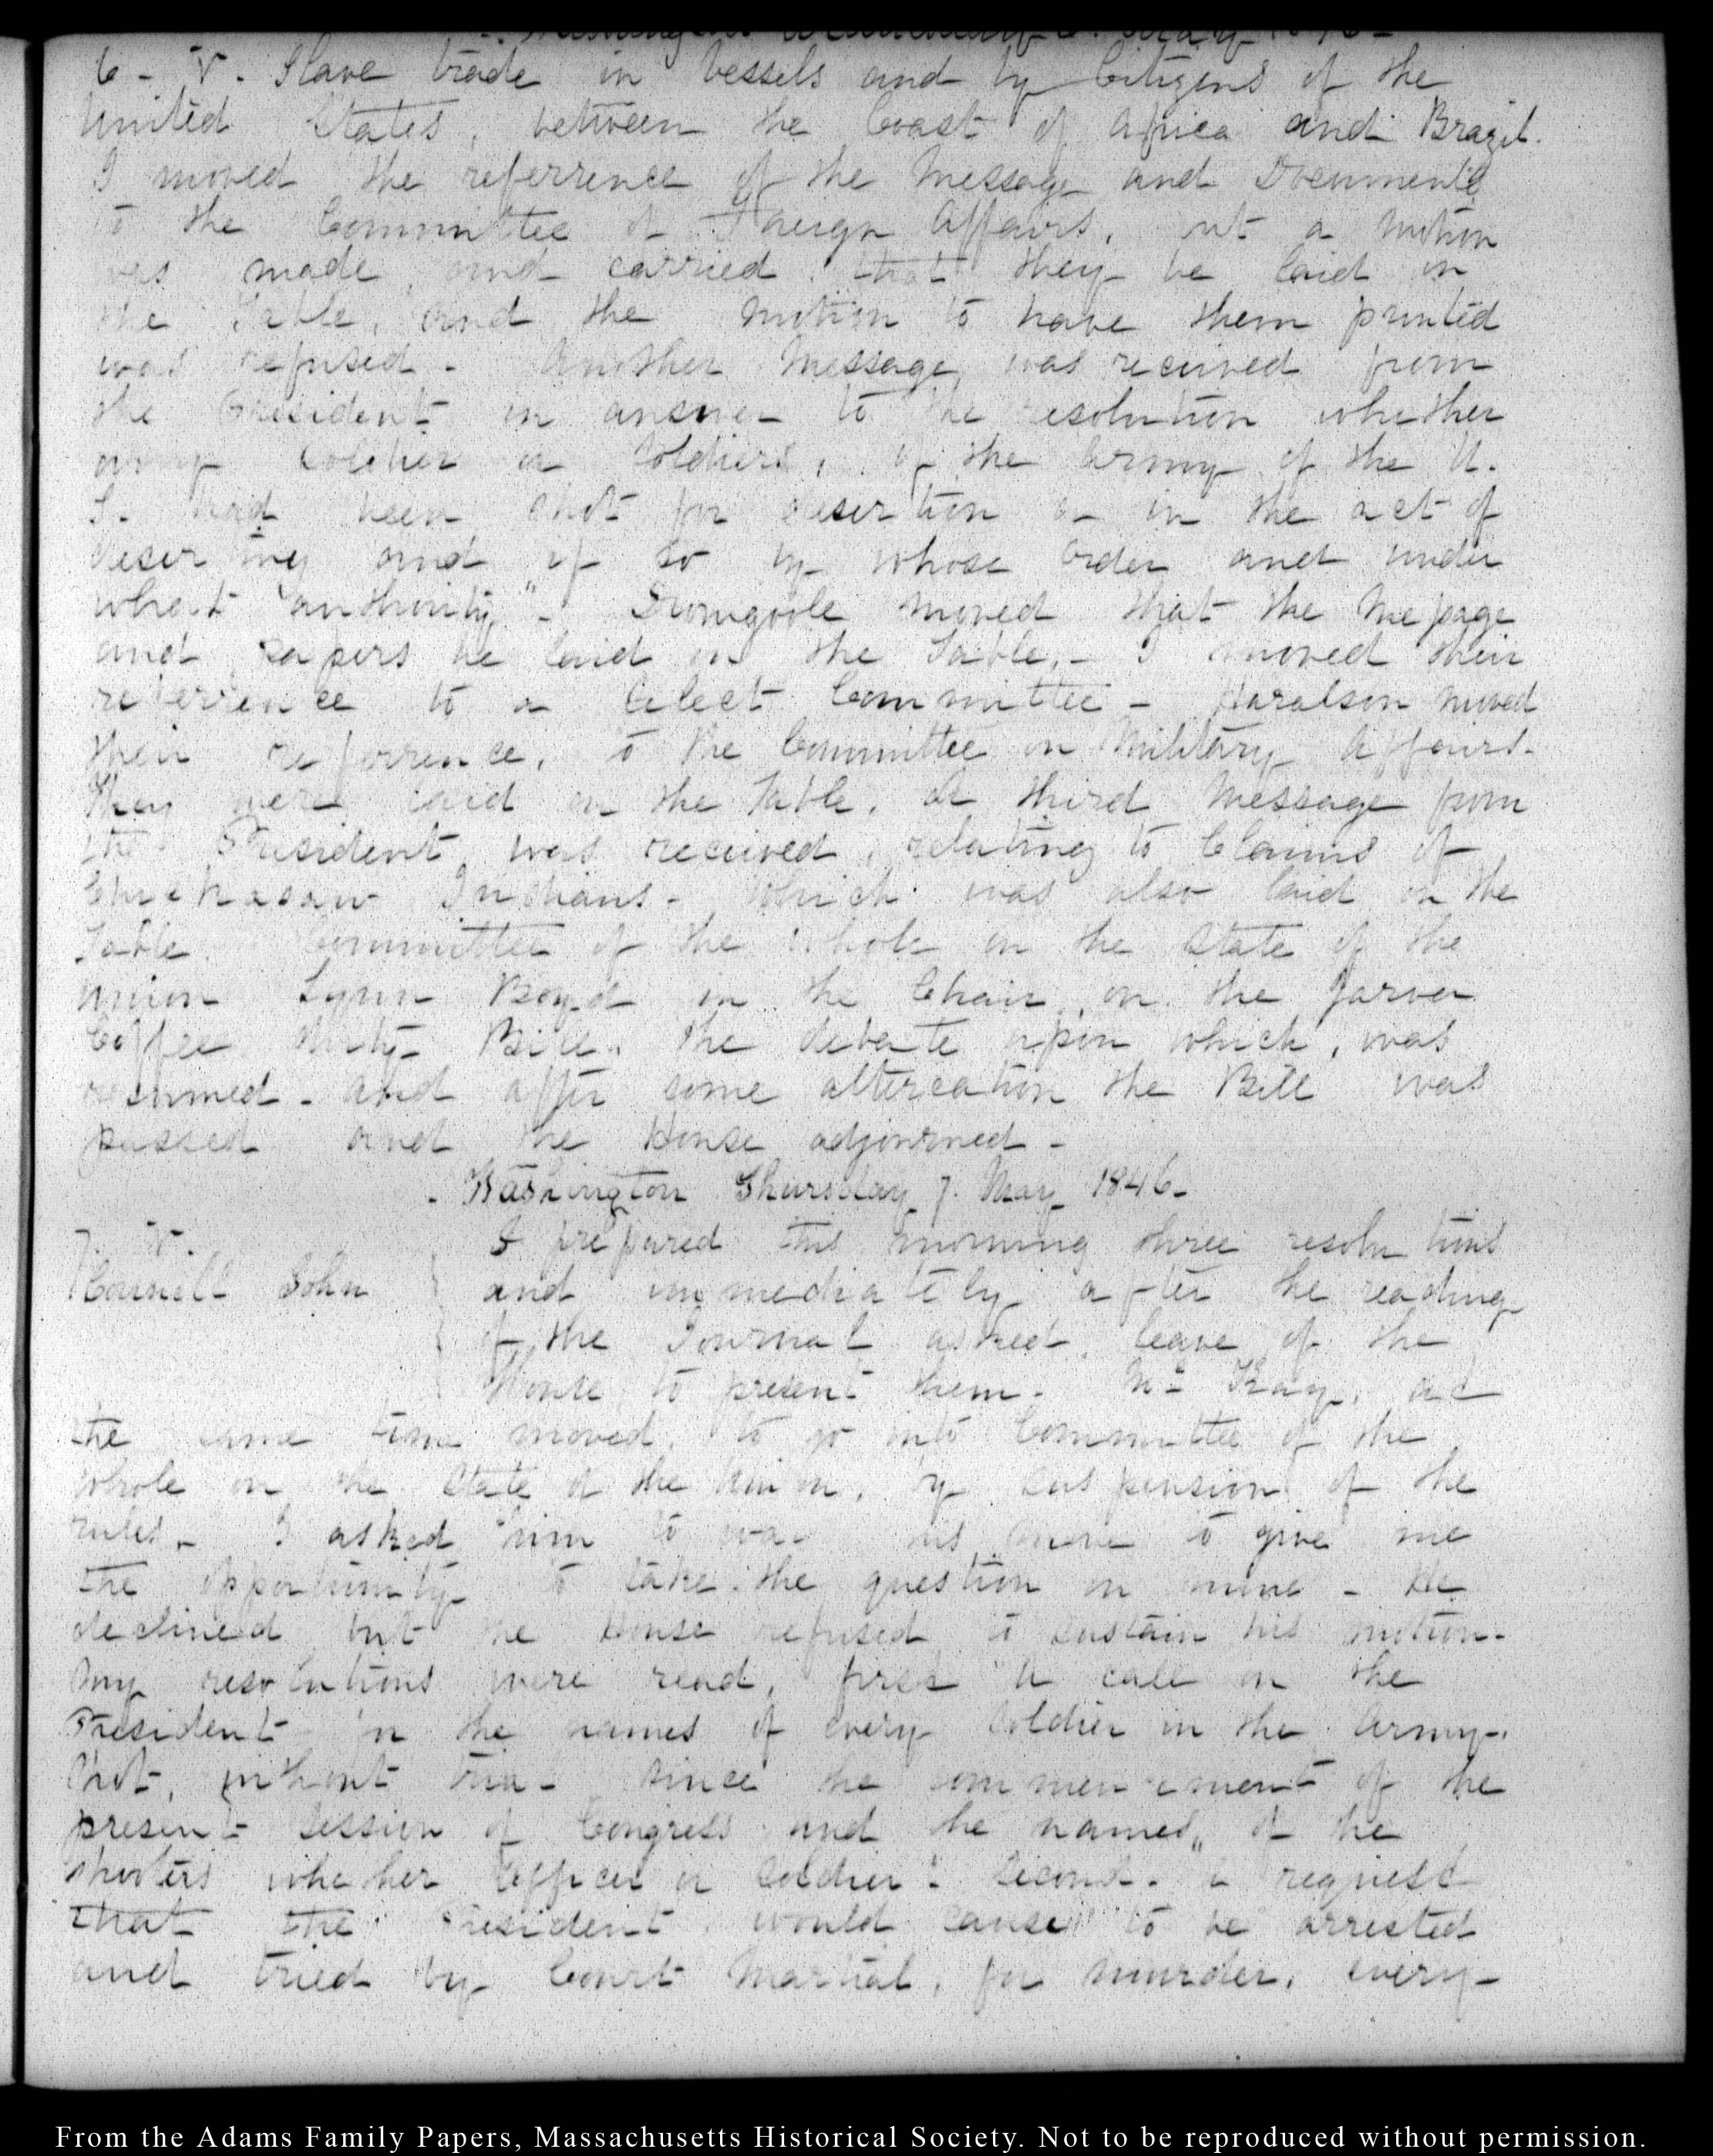 Washington Wednesday 6. May 1846-
6 - V. Slave trade in Vessels and by Citizens of the
United States, between the Coast of Africa and Brazil.
I moved the referrence of the Message and Documents
to the Committee of Foreign Affairs, but a motion
was made and carried that they be laid on
the Table, and the motion to have them printed
was refused - Another Message was received from
the President in answer to the resolution whether
any Soldier or Soldiers, of the Army of the U.
S. had been shot for desertion or in the act of
deserting and if so by whose order and under
what authority" - Dromgoole moved that the Message
and papers be laid on the Table, - I moved their
referrence to a Select Committee - Haralson moved
their referrence, to the Committee on Military Affairs.
They were laid on the Table. A third Message from
the President was received, relating to Claims of
Chickasaw Indians - which was also laid on the
Table. Committee of the whole on the State of the
Union Lynn Boyd in the Chair, on the
Coffee duty Bill. the debate upon which, was
resumed - and after some altercation the Bill was
passed and the House adjourned -
- Washington Thursday 7. May 1846-
7. V. I prepared this morning three resolutions
John and immediately after the reading
of the Journal asked leave of the
House to present them. Mc Kay, at
the same time moved, to go into Committee of the
whole on the State of the Union, by suspension of the
rules - I asked him to his move to give me
the opportunity to take the question on mine - He
declined but the House refused to sustain his motion -
My resolutions were read, first "A call on the
President for the names of every Soldier in the Army,
Shot, without trial since the commencement of the
present Session of Congress and the names, of the
shooters whether Officer or Soldier: Second - a request
that the President would cause to be arrested
and tried by Court Martial, for murder, every
From the Adams Family Papers, Massachusetts Historical Society. Not to be reproduced without permission.